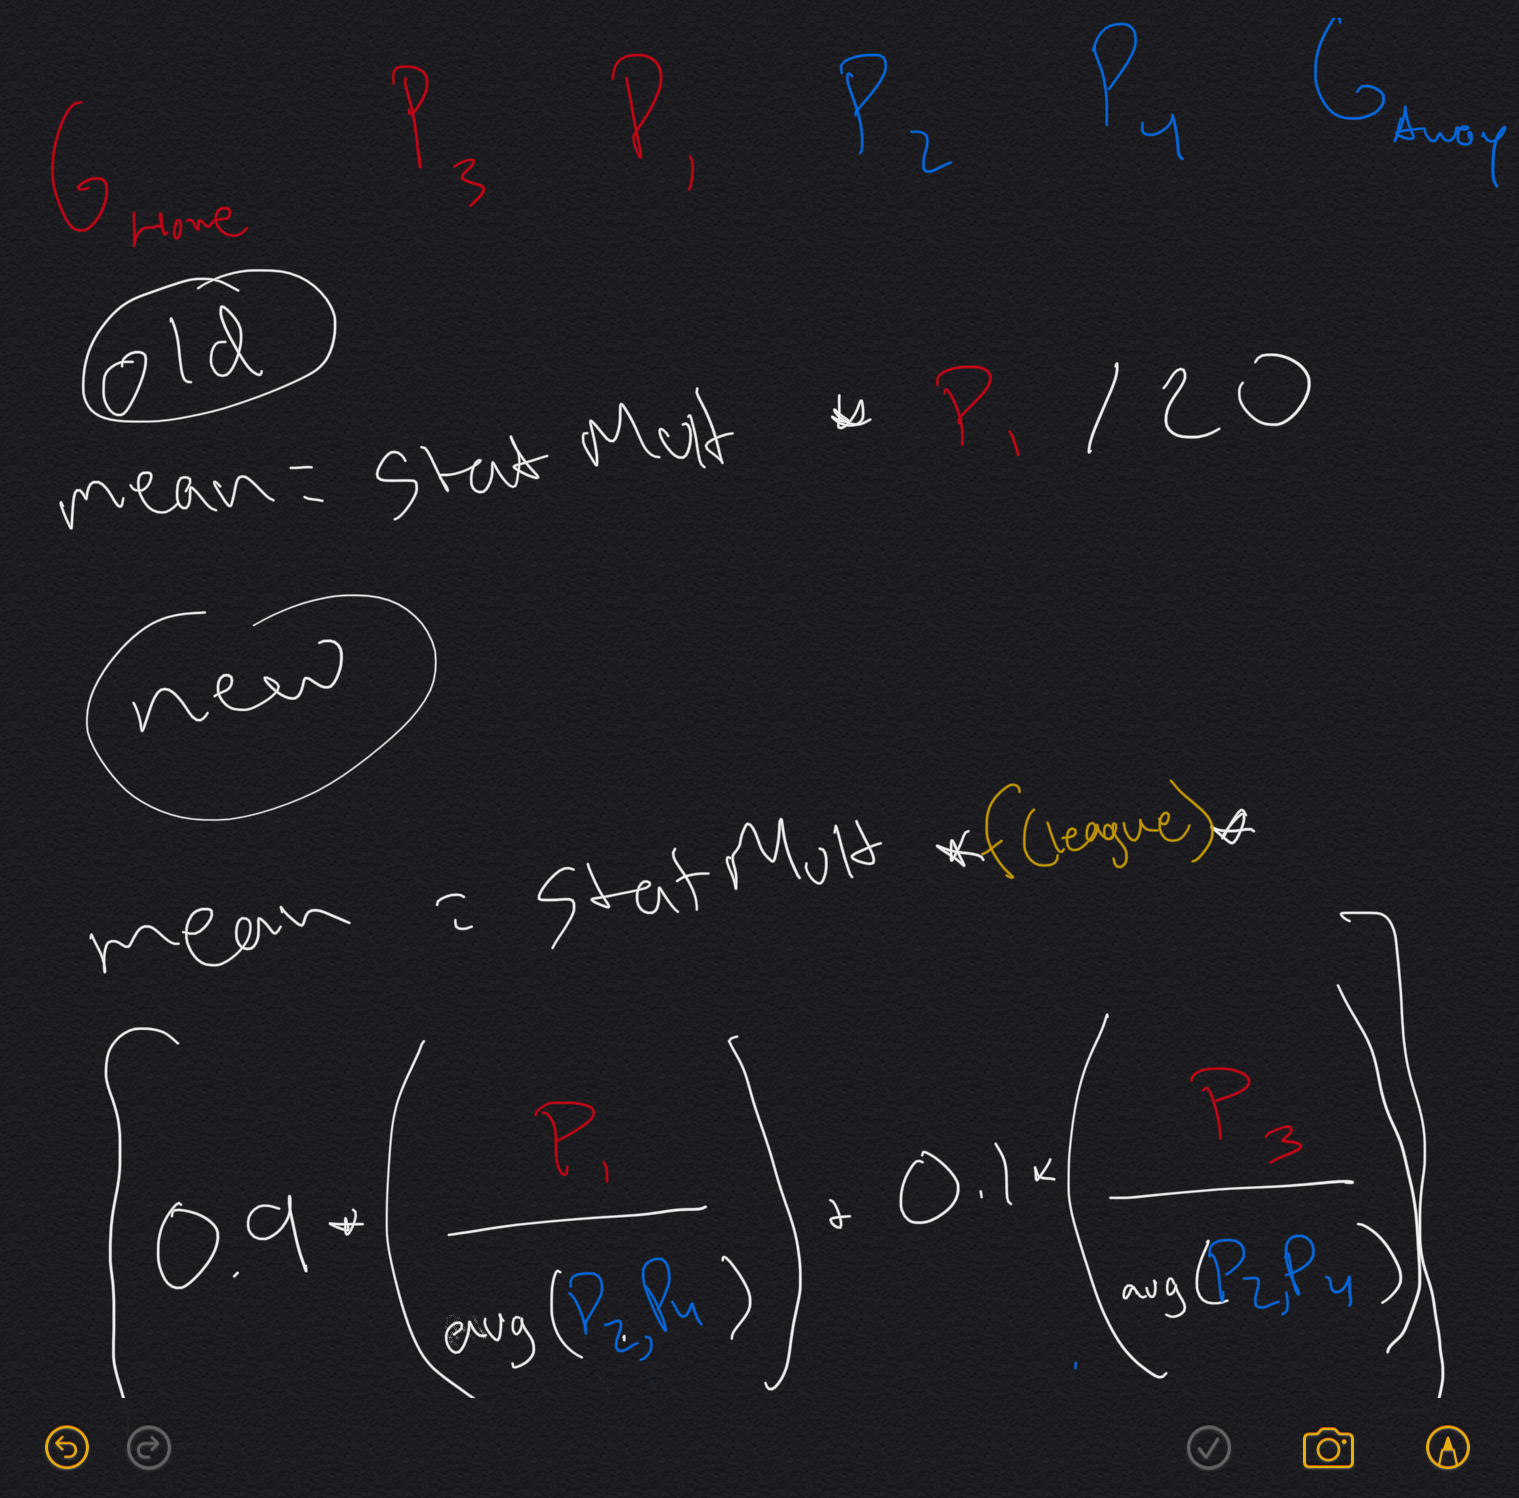 G Home P3 P1 P2 P4 G Away
old
mean = stat Mult * P1 / 20
new
mean = stat Mult * f(league) *
[0.9 * (P1 / avg(P2, P4)) + 0.1 * (P3 / avg(P2, P4))]